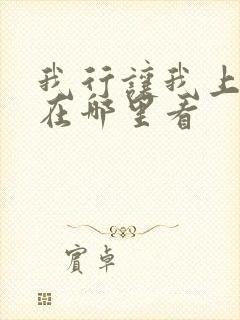 我行讓我上
在哪里看
賓卓